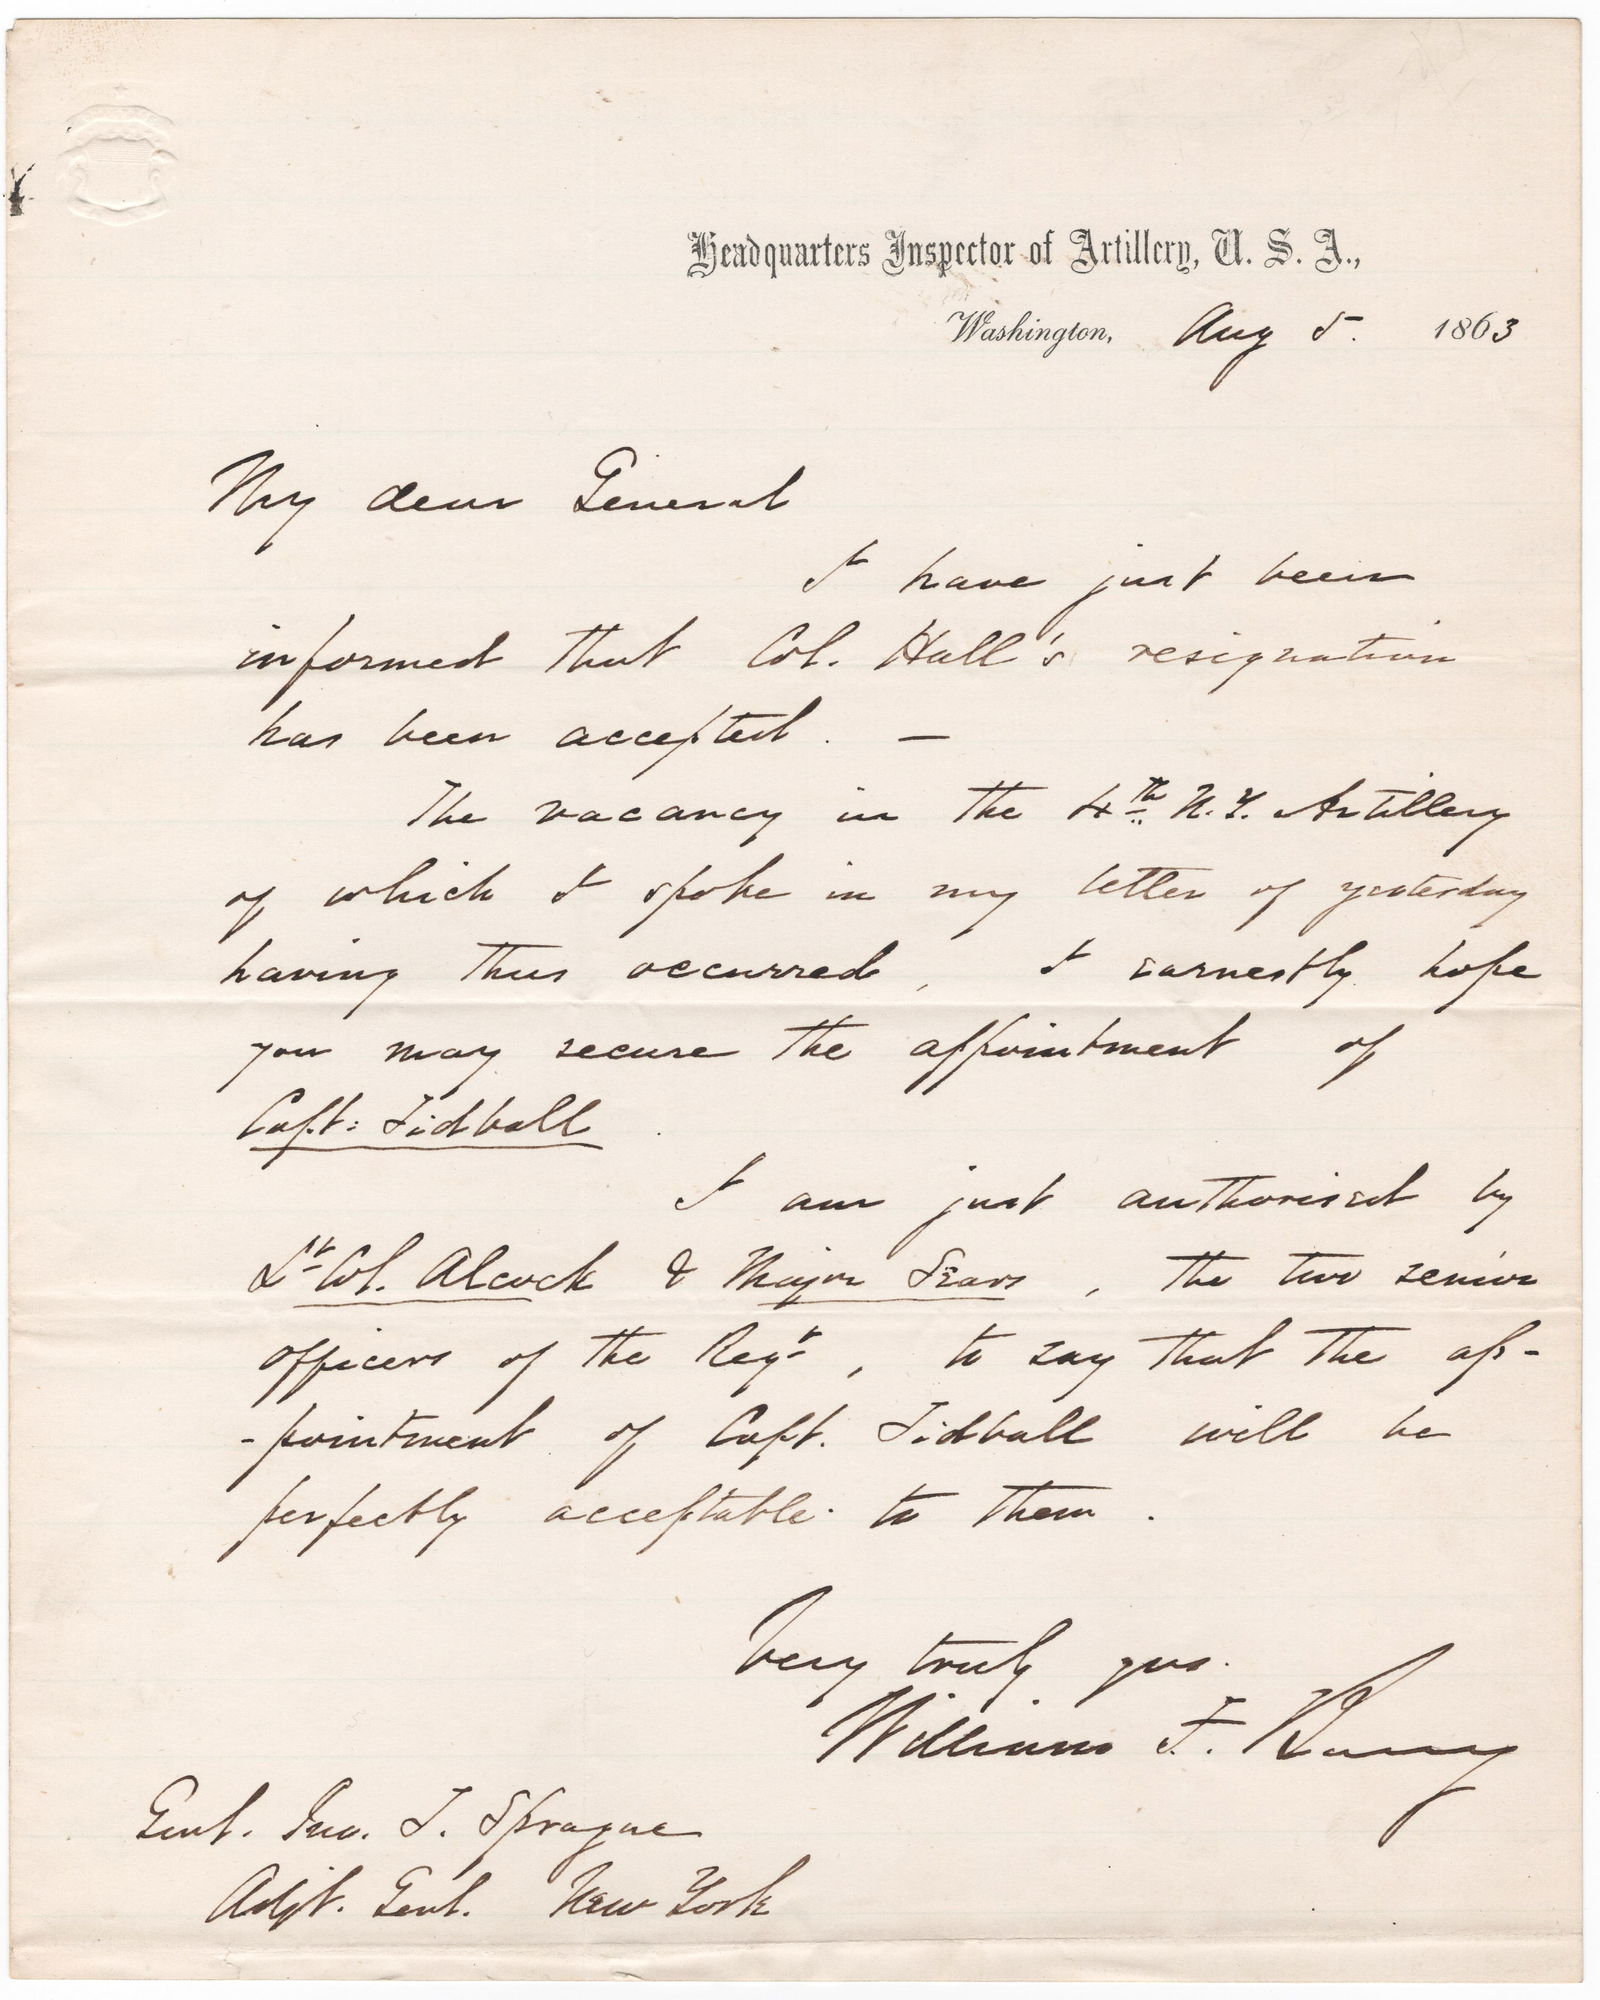 Headquarters Inspector of Artillery, U. S. A.,
Washington, Aug 5. 1863
My dear General
I have just been
informed that Col. Hall's resignation
has been accepted. —
The vacancy in the 4th N. Y. Artillery
of which I spoke in my letter of yesterday
having thus occurred, I earnestly hope
you may secure the appointment of
Capt: Tidball.
I am just authorised by
Lt Col. Alcock & Major Sears, the two senior
officers of the Regt, to say that the ap-
-pointment of Capt. Tidball will be
perfectly acceptable to them.
Very truly yrs.
William F. Barry
Genl. Jno. T. Sprague
Adjt. Genl. New York